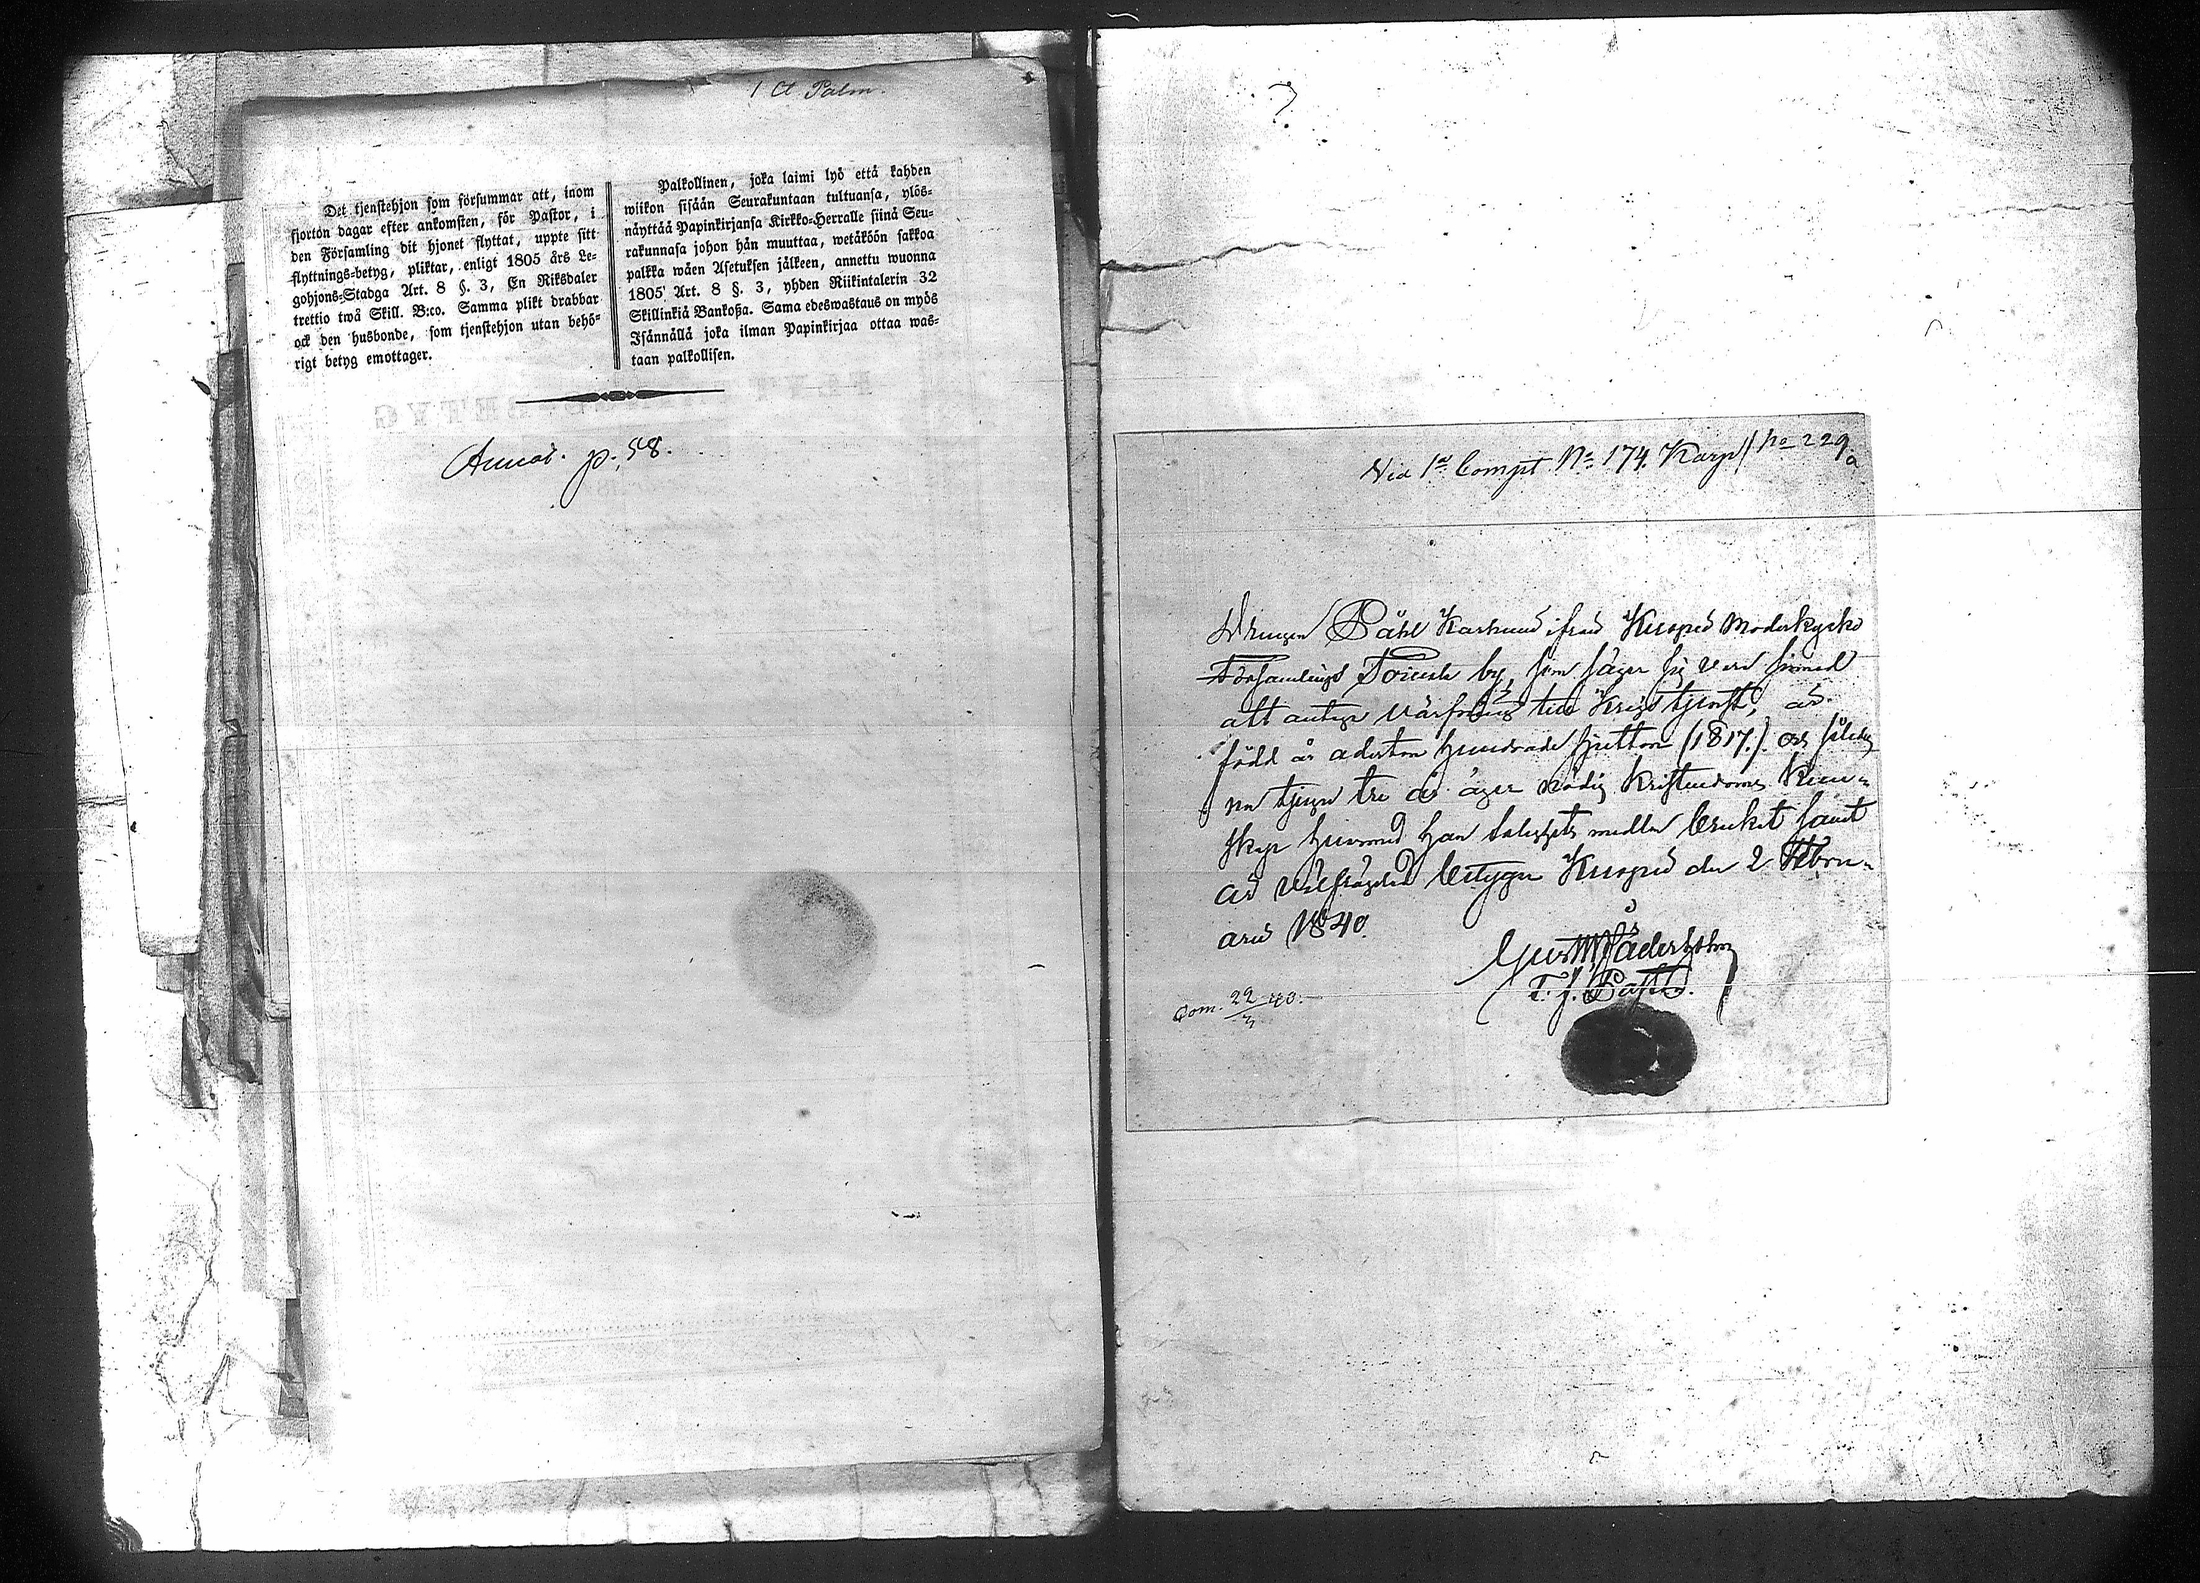 1 A Palm.
Det tjenstehjon som försummar att, inom
fjorton dagar efter ankomsten, för Pastor, i
den Församling dit hjonet flyttat, uppte sitt
flyttnings-betyg, pliktar, enligt 1805 års Le-
gohjons-Stadga Art. 8 §. 3, En Riksdaler
trettio twå Skill. B:co. Samma plikt drabbar
ock den husbonde, som tjenstehjon utan behö-
rigt betyg emottager.
Palkollinen, joka laimi lyö että kahden
wiikon sisään Seurakuntaan tultuansa, ylös-
näyttää Papinkirjansa Kirkko-Herralle siinä Seu-
rakunnasa johon hän muuttaa, wetäköön sakkoa
palkka wäen Asetuksen jälkeen, annettu wuonna
1805 Art. 8 §. 3, yhden Riikintalerin 32
Skillinkiä Bankoßa. Sama edeswastaus on myös
Isännällä joka ilman Papinkirjaa ottaa was-
taan palkollisen.
Annot. p. 58.
Vid 1a Compt. No 174. Karp // No 229
a
Drengen Påhl Karhund ifrån Kuopio Moderkyrko
Församlings by, som säger sig vara sinnad
att antaga Värfning till Krigstjenst, är
född år aderton hundrade sjutton (1817.) och således
nu tjugu tre år äger nödig Kristendoms Kun-
skap hvarmed han
Kuopio den 2 Febru-
arii 1840.
T. f. Pastor.
Com. 22/3 40.